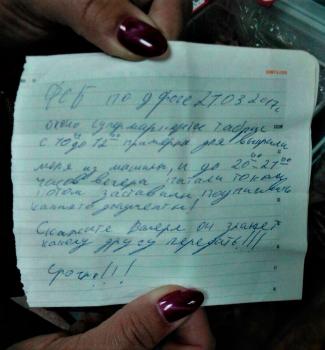 ФСБ по дороге 27.03.2017г.
около супермаркета Табрис
с 10⁰⁰ до 12⁰⁰ примерно
меня из машины, и до 20⁰⁰-21⁰⁰
часов вечера пытали током,
потом заставили подписать
какието документы!
Скажите Валере он знает
какому другу передать!!!!
Срочно!!!